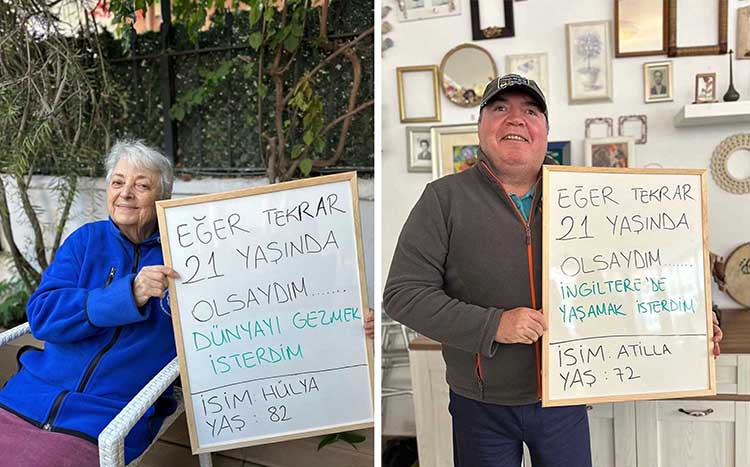 EĞER TEKRAR
21 YAŞINDA
OLSAYDIM.......
DÜNYAYI GEZMEK
İSTERDİM
İSİM: HÜLYA
YAŞ: 82
EĞER TEKRAR
21 YAŞINDA
OLSAYDIM.......
İNGİLTERE'DE
YAŞAMAK İSTERDİM
İSİM: ATİLLA
YAŞ: 72